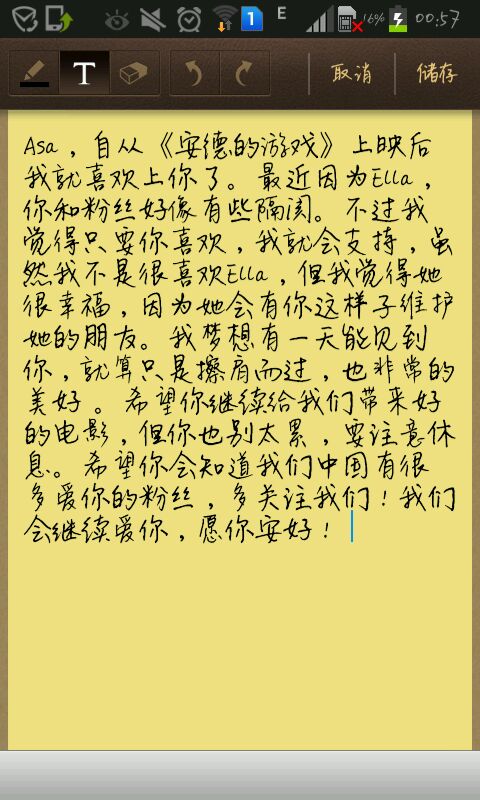 E 1 16% 00:57
T 取消 储存
Asa，自从《安德的游戏》上映后
我就喜欢上你了。最近因为Ella，
你和粉丝好像有些隔阂。不过我
觉得只要你喜欢，我就会支持，虽
然我不是很喜欢Ella，但我觉得她
很幸福，因为她会有你这样子维护
她的朋友。我梦想有一天能见到
你，就算只是擦肩而过，也非常的
美好。希望你继续给我们带来好
的电影，但你也别太累，要注意休
息。希望你会知道我们中国有很
多爱你的粉丝，多关注我们！我们
会继续爱你，愿你安好！